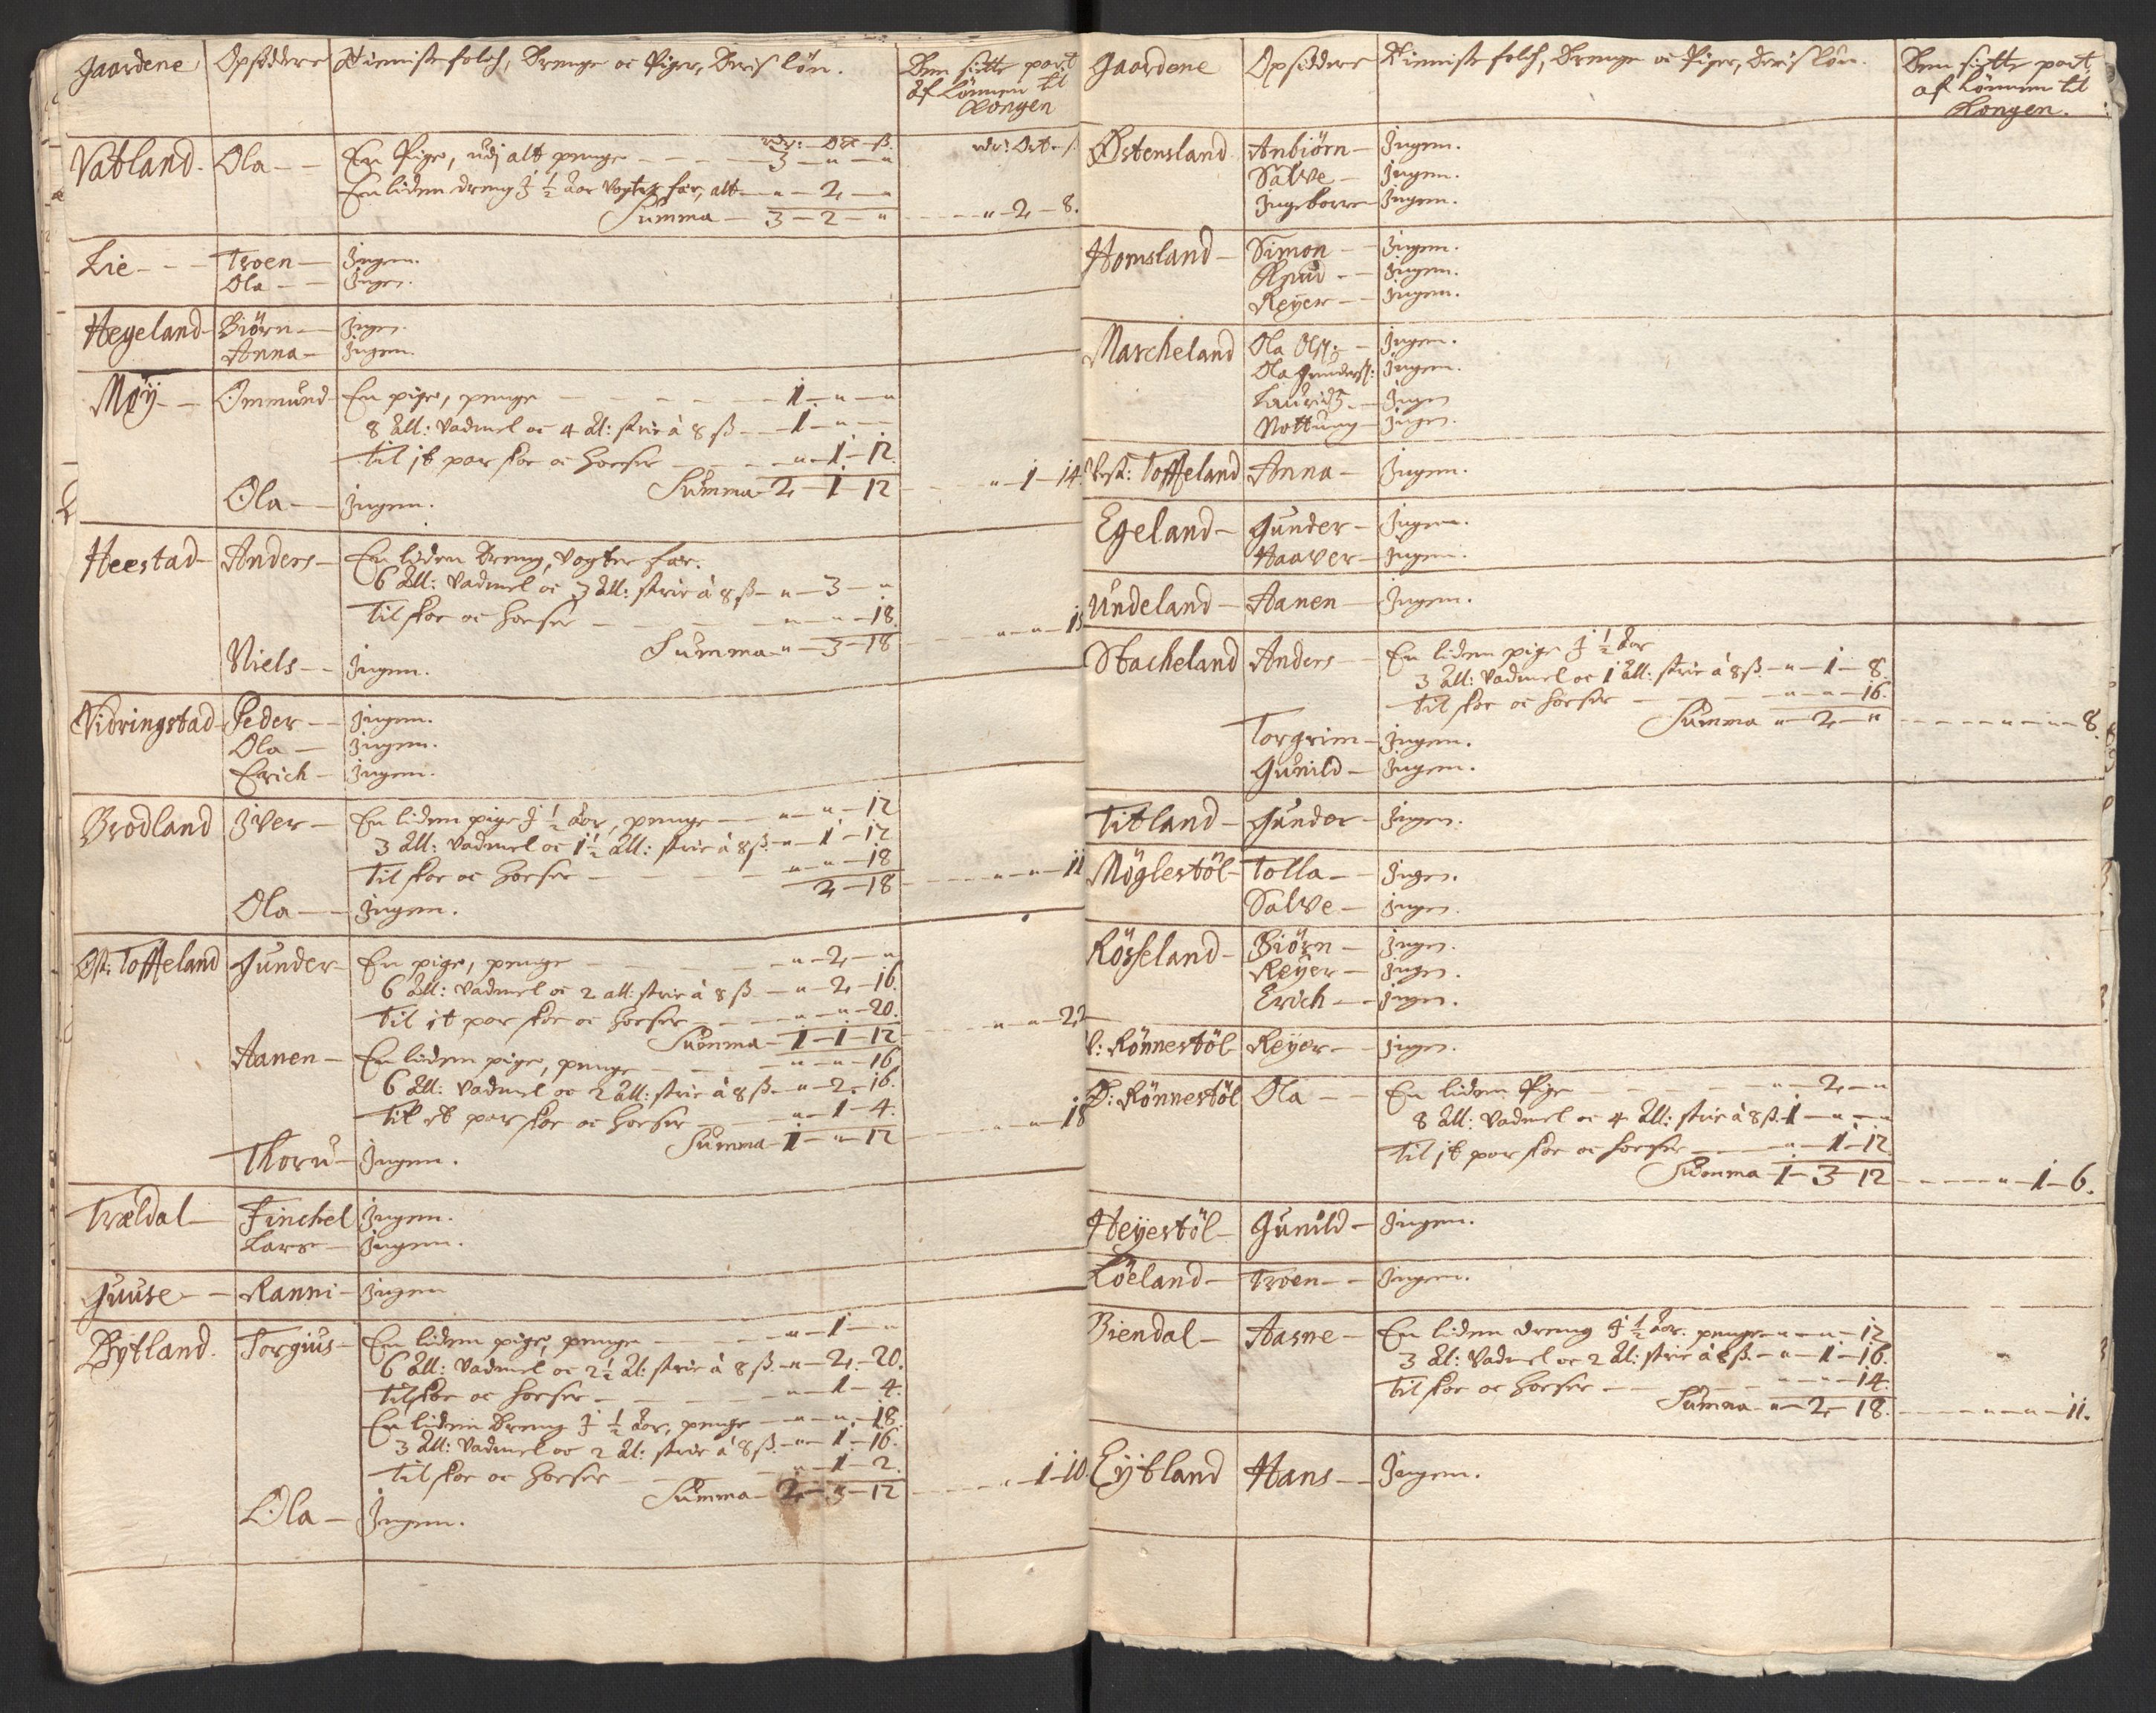 Gaardene Opsiddere Tienniste folch, Drenge oc Piger, Deris løn. Den siette part
af Lønnen til
Kongen
Rdr: Ort ß. Rdr: Ort ß.
Vatland. Ola En Pige, udj alt penge 3 — " — "
En liden dreng J ½ Aar Vogter faar, alt " — 2 — "
Summa 3 — 2 — " " — 2 — 8.
Lie Troen Jngen.
Ola Jngen.
Hegeland Biörn Jngen.
Anna Jngen.
Møÿ Ommund En pige, penge 1 — " — "
8 All: Vadmel oc 4 Al: strie à 8 ß 1 — " — "
Til jt par skoe oc hoeser " — 1 — 12.
Summa 2 — 1 — 12 " — 1 — 14.
Ola Jngen.
Heestad Anders En liden Dreng, Vogter faar.
6 All: Vadmel oc 3 All: strie à 8 ß " — 3 — "
Til skoe oc hoeser " — " — 18.
Summa " — 3 — 18 " — " — 15
Niels Jngen.
Vidringstad Peder Jngen.
Ola Jngen.
Erich Jngen.
Brodland Jver En liden pige J ½ Aar, penge " — " — 12
3 All: Vadmel oc 1½ All: strie à 8 ß. " — 1 — 12
Til skoe oc hoeser " — " — 18
2 — 18 " — " — 11
Ola Jngen.
Øst: Toffteland Gunder En pige, penge " — 2 — "
6 All: Vadmel oc 2 all: strie à 8 ß " — 2 — 16.
Til jt par skoe oc hoeser " — " — 20.
Summa 1 — 1 — 12 " — " — 22
Aanen En liden pige, penge " — " — 16
6 All: Vadmel oc 2 All: strie à 8 ß. " — 2 — 16.
Til et par skoe oc hoeser " — 1 — 4.
Summa 1 — " — 12 " — " — 18
Thoru Jngen.
Trældal Finchel Jngen.
Lars Jngen.
Guuse Ranni Jngen
Bÿtland. Torgius En liden pige, penge " — 1 — "
6 All: Vadmel oc 2½ Al: strie à 8 ß. " — 2 — 20.
Til skoe oc hoeser " — 1 — 4.
En liden Dreng J ½ Aar, penge " — " — 18.
3 All: Vadmel oc 2 Al: strie à 8 ß. " — 1 — 16.
Til skoe oc hoeser " — 1 — 2.
Summa 2 — " — 12 " — 1 — 10.
Ola Jngen.
Gaardene Opsiddere Tienniste folch, Drenge oc Piger, Deris Løn. Den siette part
af Lønnen til
Kongen.
Østensland Anbiörn Jngen.
Salve Jngen.
Jngeborre Jngen.
Homsland Simon Jngen.
Knud Jngen.
Reÿer Jngen.
Marcheland Ola Olss: Jngen.
Ola Gunderss: Jngen.
Lauridz Jngen
Nottung Jngen.
Vest: Toffteland Anna Jngen.
Egeland Gunder Jngen.
Haaver Jngen.
Undeland Aanen Jngen.
Stacheland Anders En liden pige J ½ Aar
3 All: Vadmel oc 1 All: strie à 8 ß. " — 1 — 8.
Til skoe oc hoeser " — " — 16.
Summa " — 2 — " " — " — 8.
Torgrim Jngen.
Gunild Jngen.
Titland Gunder Jngen.
Möglestöl Tolla Jngen.
Salve Jngen.
Rösseland Biörn Jngen.
Reÿer Jngen.
Erich Jngen.
V: Rönnestöl Reÿer Jngen.
Ø: Rönnestöl Ola En liden Pige " — 2 — "
8 All: Vadmel oc 4 All: strie à 8 ß. 1 — " — "
Til jt par skoe oc hoeser " — 1 — 12
Summa 1 — 3 — 12 " — 1 — 6.
Heÿestöl Gunild Jngen.
Löeland Troen Jngen.
Biendal Aasne En liden dreng J ½ Aar. penge " — " — 12
3 Al: Vadmel oc 2 Al: strie à 8 ß. " — 1 — 16.
Til skoe oc hoeser " — " — 14.
Summa " — 2 — 18. " — " — 11.
Eÿtland Hans Jngen.